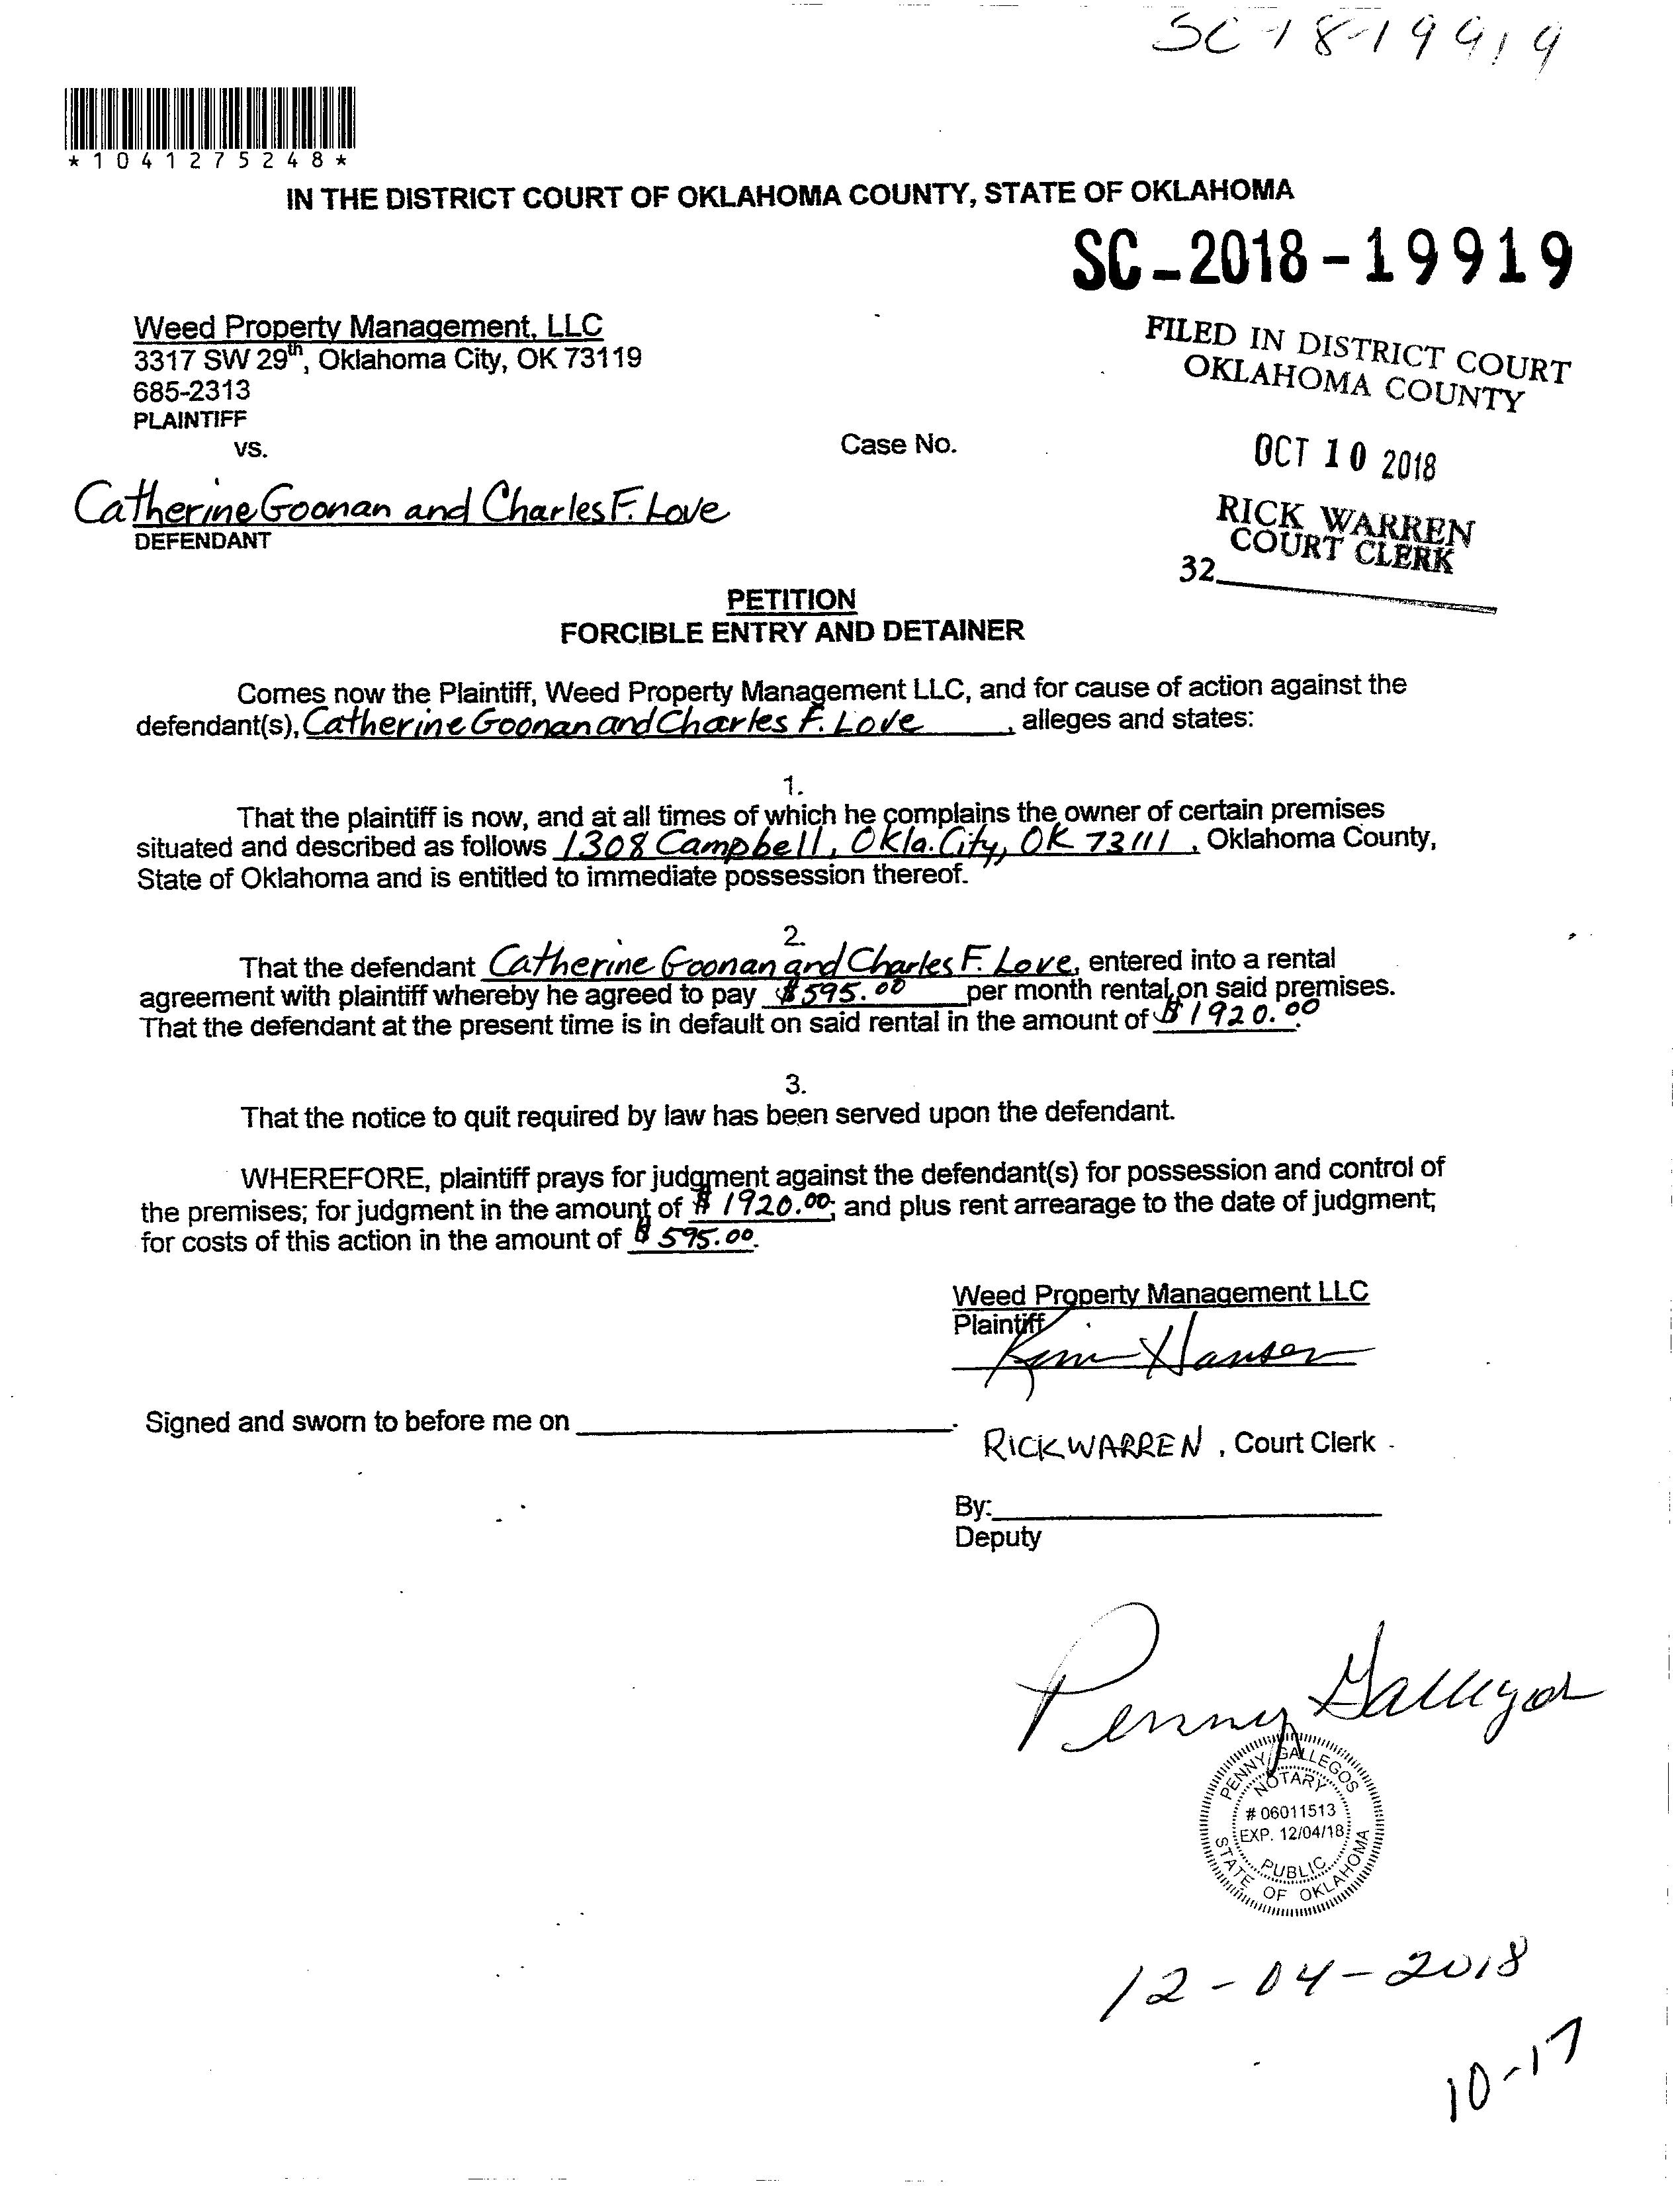 SC-18-19919
*1041275248*
IN THE DISTRICT COURT OF OKLAHOMA COUNTY, STATE OF OKLAHOMA
SC-2018-19919
Weed Property Management, LLC
3317 SW 29th, Oklahoma City, OK 73119
685-2313
PLAINTIFF
vs.
Case No.
FILED IN DISTRICT COURT
OKLAHOMA COUNTY
OCT 10 2018
RICK WARREN
COURT CLERK
32
Catherine Goonan and Charles F. Love
DEFENDANT
PETITION
FORCIBLE ENTRY AND DETAINER
Comes now the Plaintiff, Weed Property Management LLC, and for cause of action against the
defendant(s), Catherine Goonan and Charles F. Love, alleges and states:
1.
That the plaintiff is now, and at all times of which he complains the owner of certain premises
situated and described as follows 1308 Campbell, Okla. City, OK 73111, Oklahoma County,
State of Oklahoma and is entitled to immediate possession thereof.
2.
That the defendant Catherine Goonan and Charles F. Love, entered into a rental
agreement with plaintiff whereby he agreed to pay $595.00 per month rental on said premises.
That the defendant at the present time is in default on said rental in the amount of $1920.00.
3.
That the notice to quit required by law has been served upon the defendant.
WHEREFORE, plaintiff prays for judgment against the defendant(s) for possession and control of
the premises; for judgment in the amount of $1920.00; and plus rent arrearage to the date of judgment;
for costs of this action in the amount of $595.00.
Weed Property Management LLC
Plaintiff
Kim Hansen
Signed and sworn to before me on ____.
RICK WARREN, Court Clerk
By:
Deputy
Penny Gallegos
PENNY GALLEGOS
NOTARY
# 06011513
EXP. 12/04/18
PUBLIC
STATE OF OKLAHOMA
12-04-2018
10-17